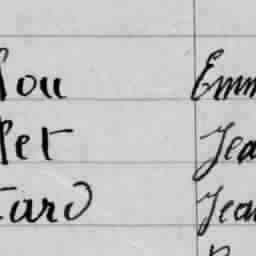 lou Emm
let Jea
tard Jea